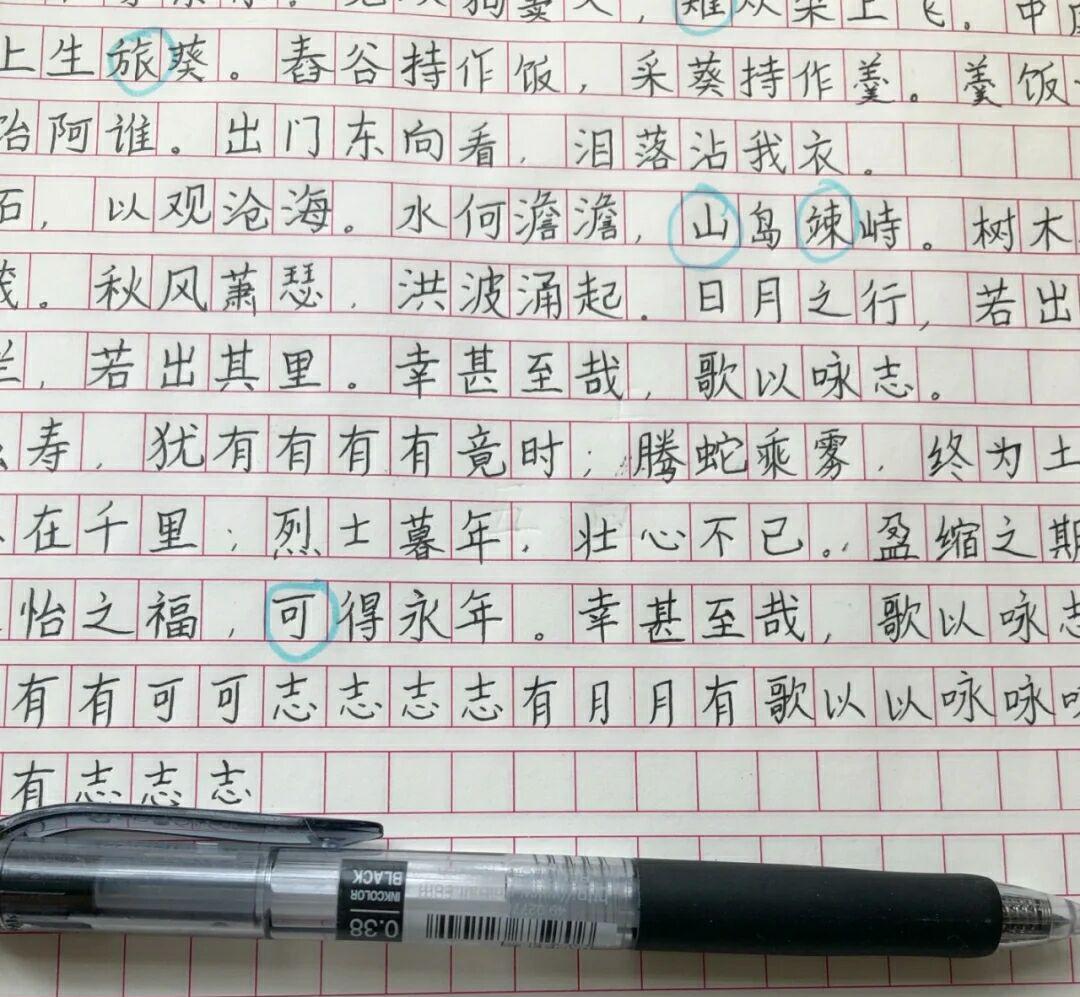 上生旅葵。舂谷持作饭，采葵持作羹。羹饭
阿谁。出门东向看，泪落沾我衣。
石，以观沧海。水何澹澹，山岛竦峙。树木
茂。秋风萧瑟，洪波涌起。日月之行，若出
若出其里。幸甚至哉，歌以咏志。
寿，犹有有有有竟时；腾蛇乘雾，终为土
在千里；烈士暮年，壮心不已。盈缩之期
怡之福，可得永年。幸甚至哉，歌以咏志
有有可可志志志志有月月有歌以以咏咏咏
有志志志志
0.38
INKCOLOR
BLACK